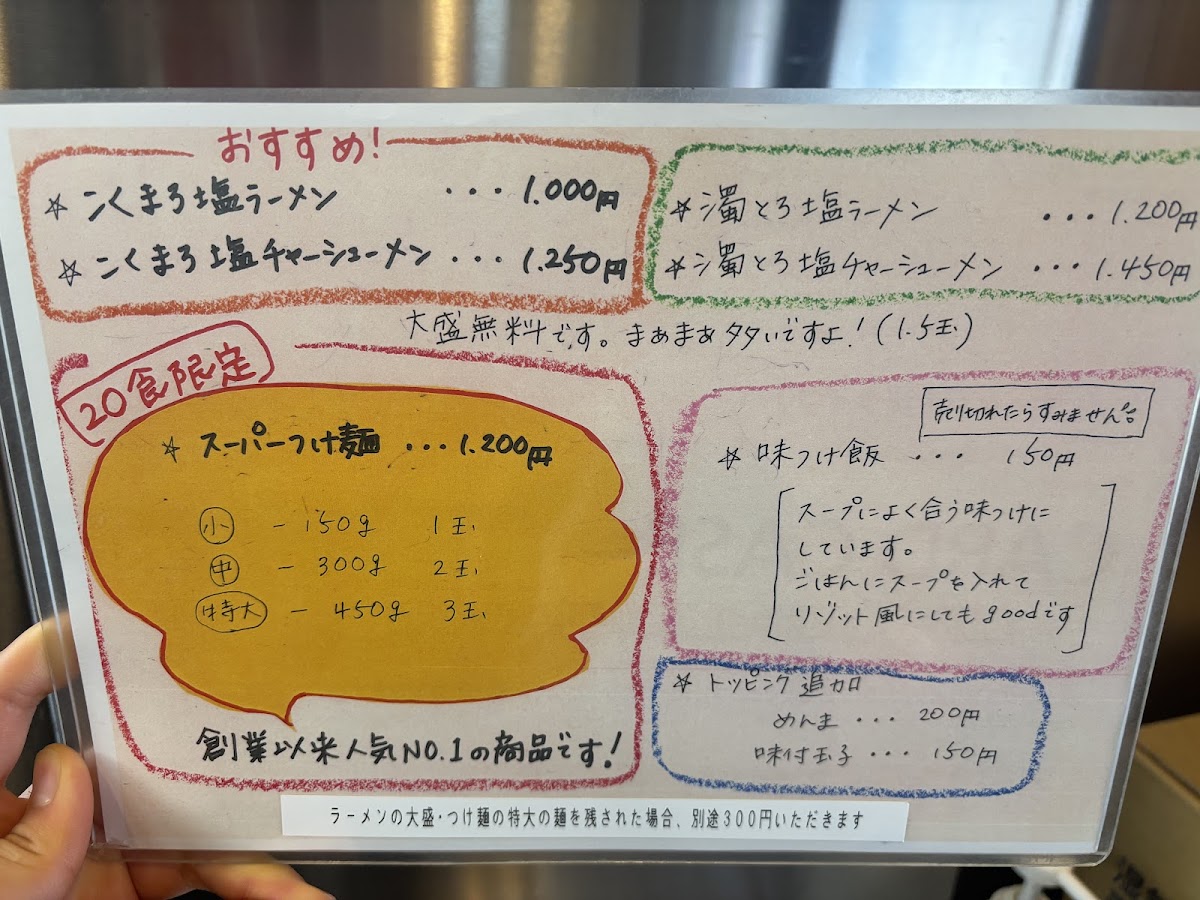 おすすめ!
☆ こくまろ塩ラーメン ・・・ 1.000円
☆ こくまろ塩チャーシューメン ・・・ 1.250円
☆ 濁とろ塩ラーメン ・・・ 1.200円
☆ 濁とろ塩チャーシューメン ・・・ 1.450円
大盛無料です。まあまあ多いですよ!(1.5玉)
20食限定
☆ スーパーつけ麺 ・・・ 1.200円
小 - 150g 1玉
中 - 300g 2玉
特大 - 450g 3玉
創業以来人気NO.1の商品です!
売り切れたらすみません。
☆ 味つけ飯 ・・・ 150円
スープによく合う味つけに
しています。
ごはんにスープを入れて
リゾット風にしてもgoodです
☆ トッピング追加
めんま ・・・ 200円
味付玉子 ・・・ 150円
ラーメンの大盛・つけ麺の特大の麺を残された場合、別途300円いただきます